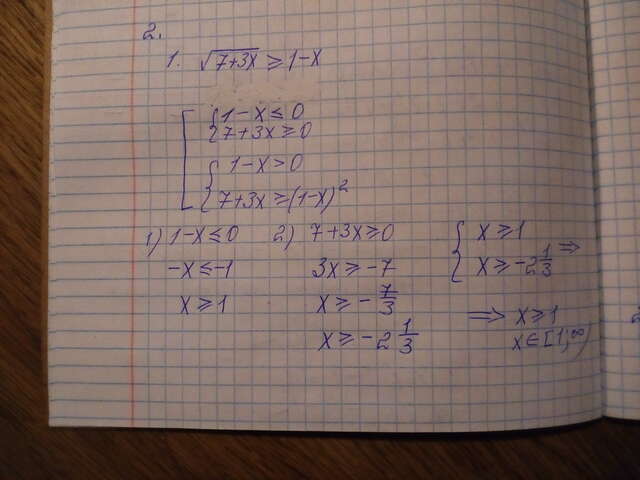 2.
1. √7+3x ≥ 1-x
1-x ≤ 0
7+3x ≥ 0
1-x > 0
7+3x ≥ (1-x)²
1) 1-x ≤ 0
-x ≤ -1
x ≥ 1
2) 7+3x ≥ 0
3x ≥ -7
x ≥ -7/3
x ≥ -2 1/3
x ≥ 1
x ≥ -2 1/3 ⇒
⇒ x ≥ 1
x ∈ [1; ∞)